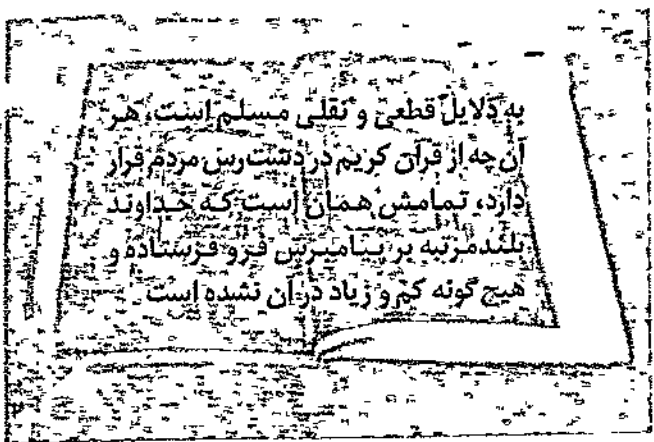 به دلایل قطعی و نقلی مسلم است، هر
آن‌چه از قرآن کریم در دسترس مردم قرار
دارد، تمامش همان است که خداوند
بلندمرتبه بر پیامبرش فرو فرستاده و
هیچ گونه کم و زیاد در آن نشده است